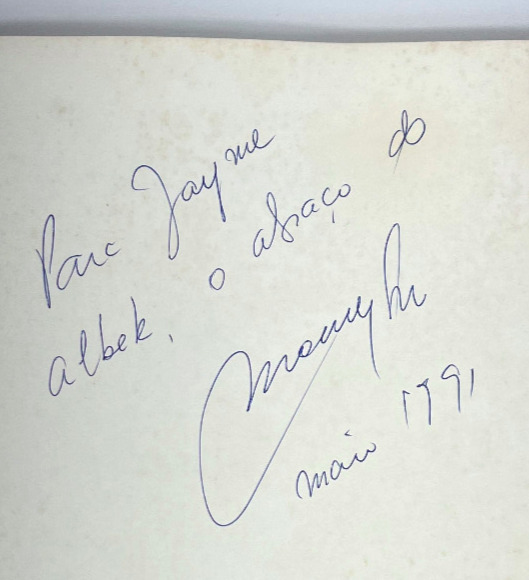 Para Jayme
albek, o abraço do
maio 1991